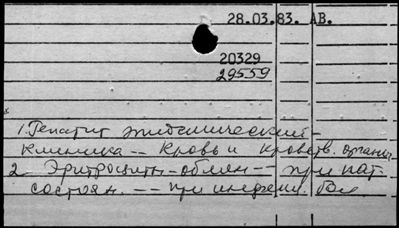 28.03.83. АВ.
20329
29559
1. Гепатит эпидемический -
клиника -- Кровь и кроветв. органы
2 Эритроциты - обмен -- при пат.
состоян. -- при инфекц.